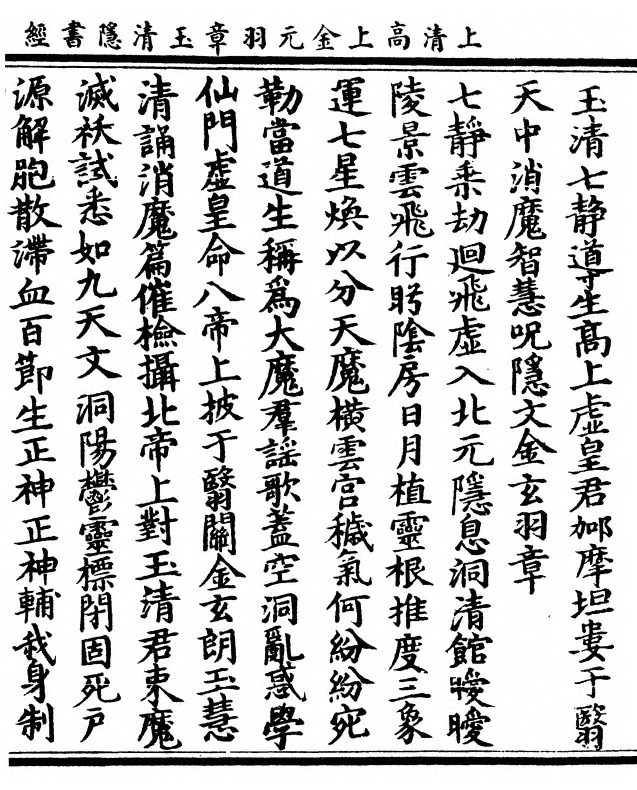 上清高上金元羽章玉清隱書經
玉清七静導生高上虛皇君摩坦婁于翳
天中消魔智慧呪隱文金玄羽章
七靜乘劫迴飛虛入北元隱息洞清館曖曖
陵景雲飛行眄陰房日月植靈根推度三象
運七星煥以分天魔横雲宫穢氣何紛紛宛
勒當道生稱爲大魔羣謡歌蓋空洞亂惑學
仙門虛皇命八帝上披于翳關金玄朗玉慧
清誦消魔篇催檢攝北帝上對玉清君束魔
滅祅試悉如九天文洞陽鬱靈標閉固死户
源解胞散滯血百節生正神正神輔我身制